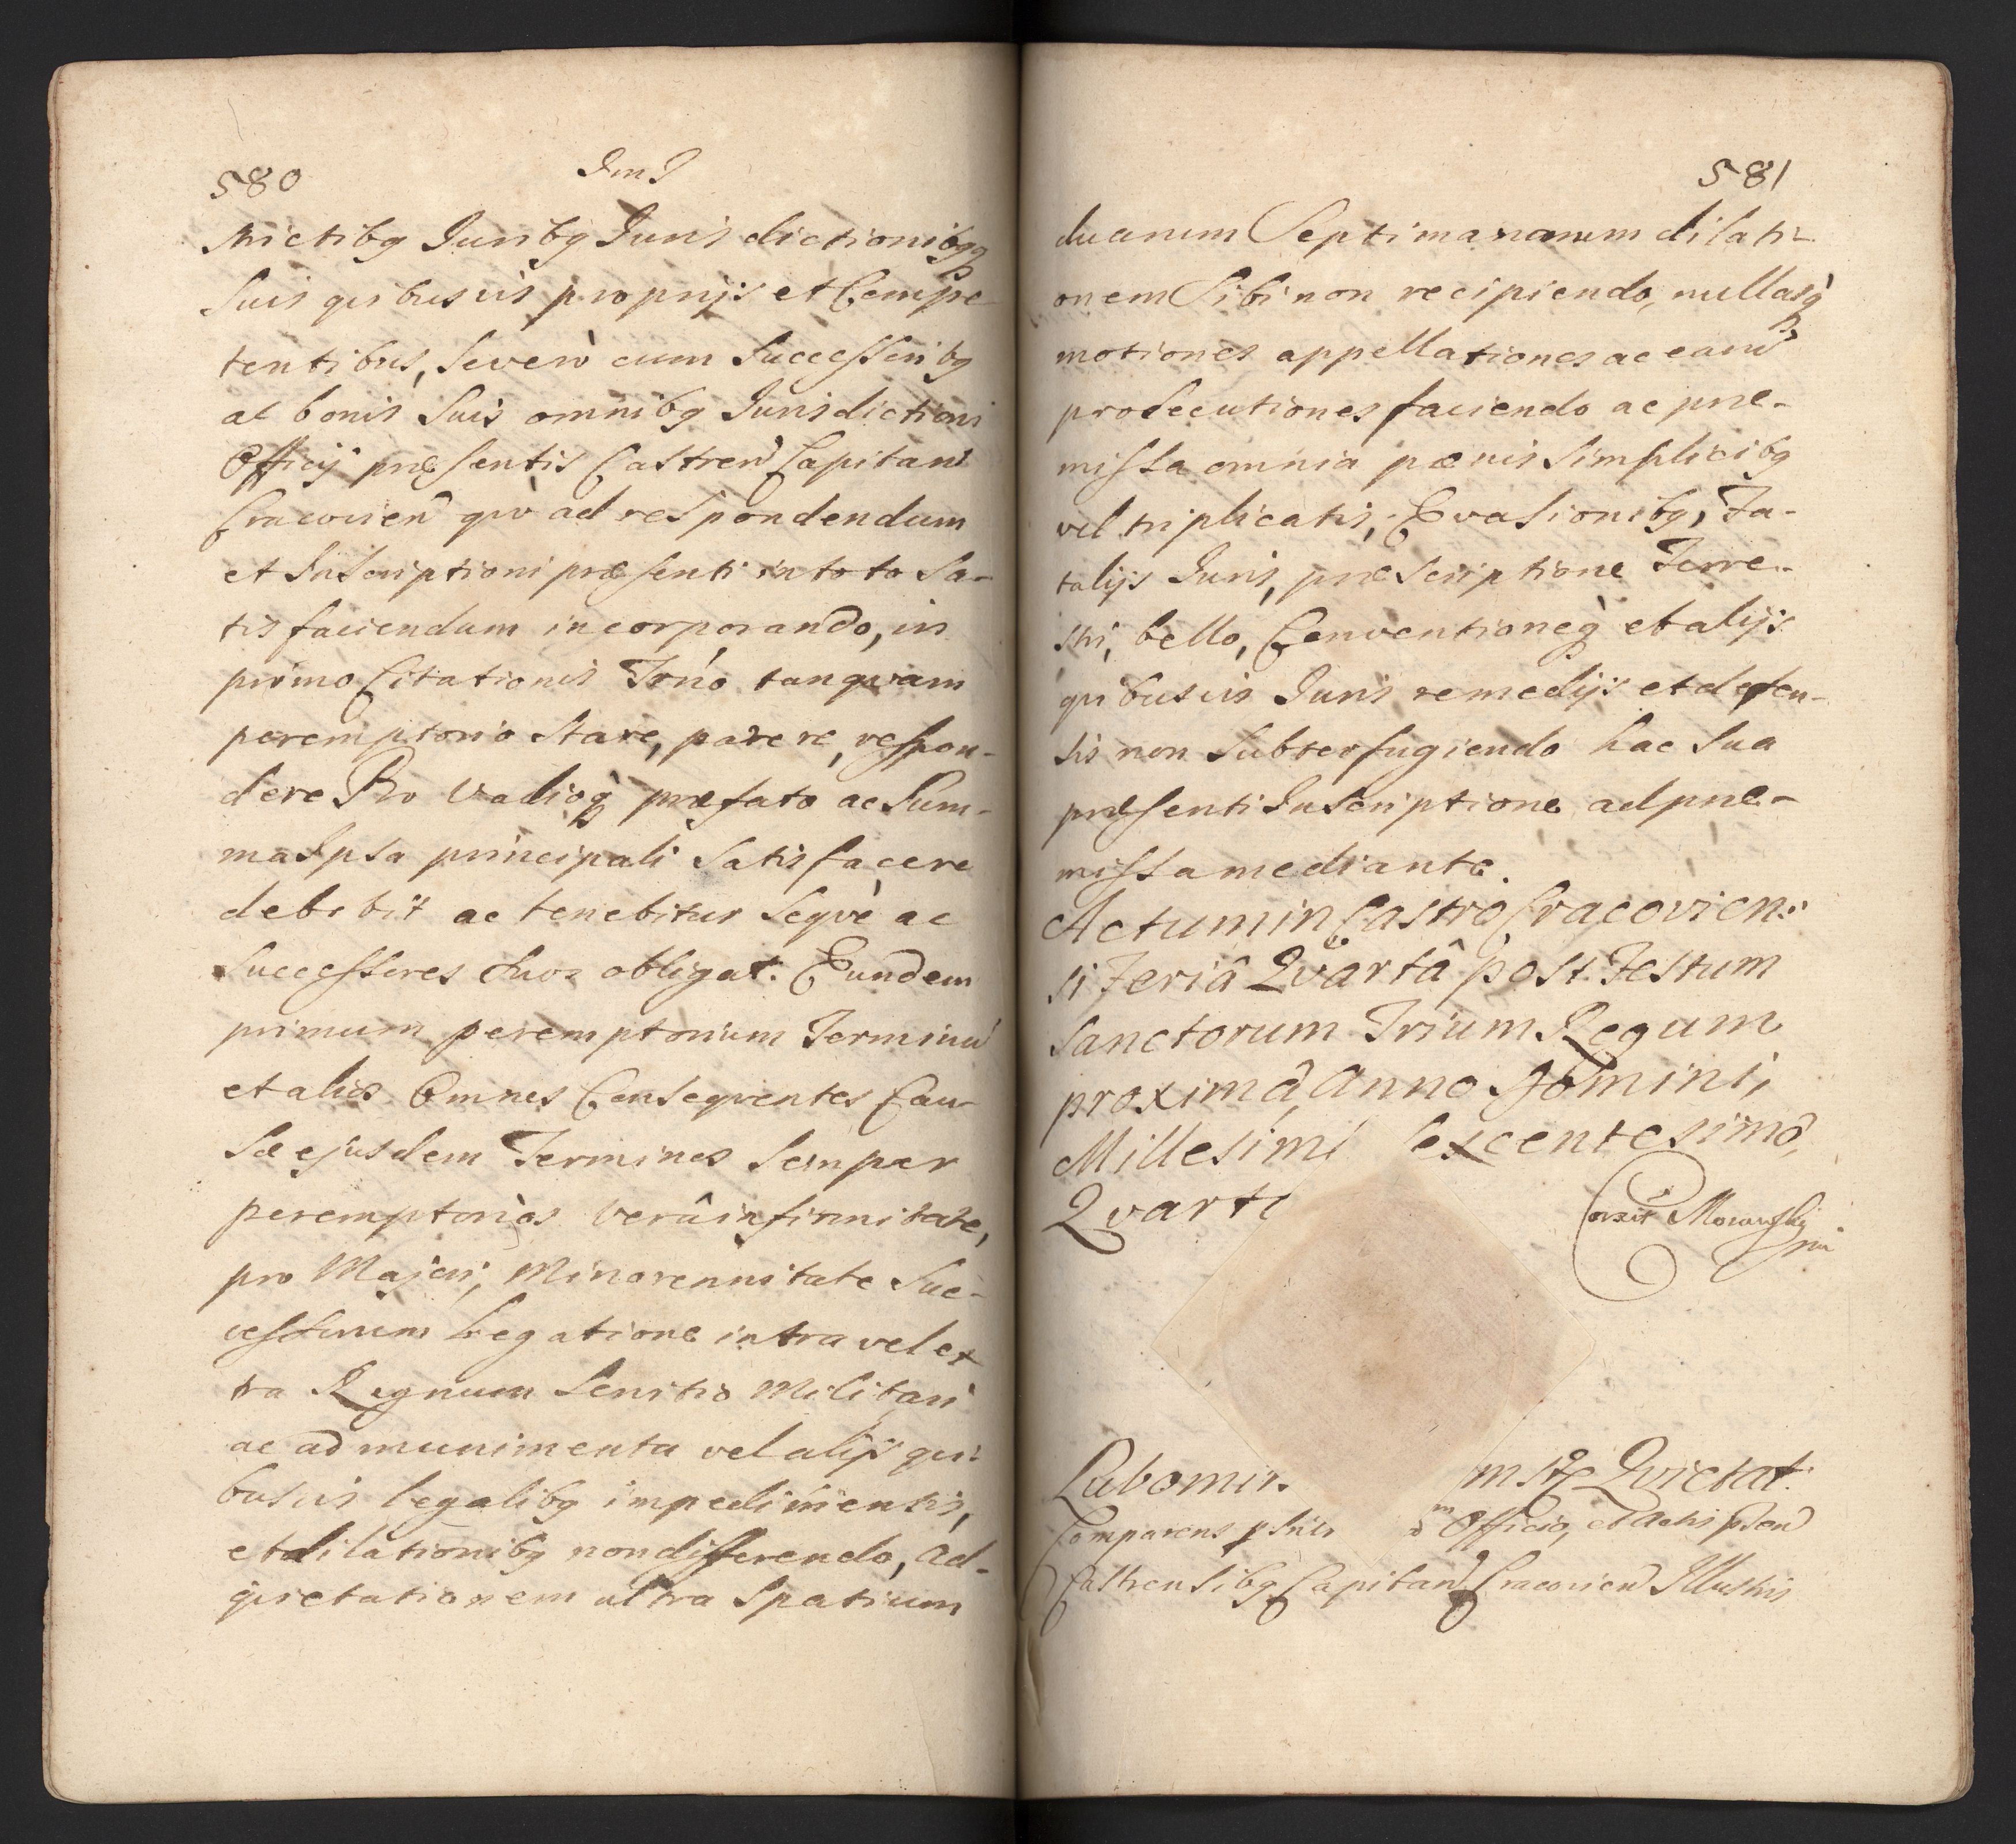 580
JmJ
strictibq Juribq Juris dictionibqq
Suis quibusvis proprijs et Compe
tentibus, Severò cum Successoribq
at bonis Suis omnibq Jurisdictioni
Officij præsentis Castren Capitan
Cracovien quò ad respondendum
et Inscriptioni præsenti in toto Sa-
tis faciendum incorporando, in
primo Citationis Trno tanqvam
peremptorio Stare, parere, respon-
dere Pro Vadioq præfato ac Sum-
ma Ipsa principali Satisfacere
debebit ac tenebitur Seqvè ac
Successores Suos obligat. Eundem
primum peremptorium Terminu
et alios Omnes Conseqventes Cau-
sæ ejusdem Terminos Semper
peremptorios verâ infirmitate,
pro Majori, Minorennitate Suc-
cessorum Legatione intra vel ex
tra Regnum Servitio Militari
ac ad munimenta vel alijs qui-
busvis legalibq impedimentis,
et dilationibq non differendo, Ad-
qvietationem ultra Spatium
581
duarum Septimanarum dilati-
onem Sibi non recipiendo, nullasq
motiones appellationes ac earu
prosecutiones faciendo ac præ-
missa omnia pænis Simplicibq
vel triplicatis, Evasionibq, Fa-
talijs Juris, præscriptione Terre-
stri, bello, Conventioneq et alijs
quibusvis Juris remedijs et defen-
sis non Subterfugiendo hac Sua
præsenti Inscriptione ad præ-
missa mediante.
Actum in Castro Cracovien:
si Feriâ Qvartâ post Festum
Sanctorum Trium Regum
proximâ, Anno Domini,
Millesimi Sexcentesimô,
Qvart
Corexit Morawsky
mp
Lubomir. Qvietat:
Comparens Officio, et Actis Psen
Castrensibq Capitan Cracovien Illustris